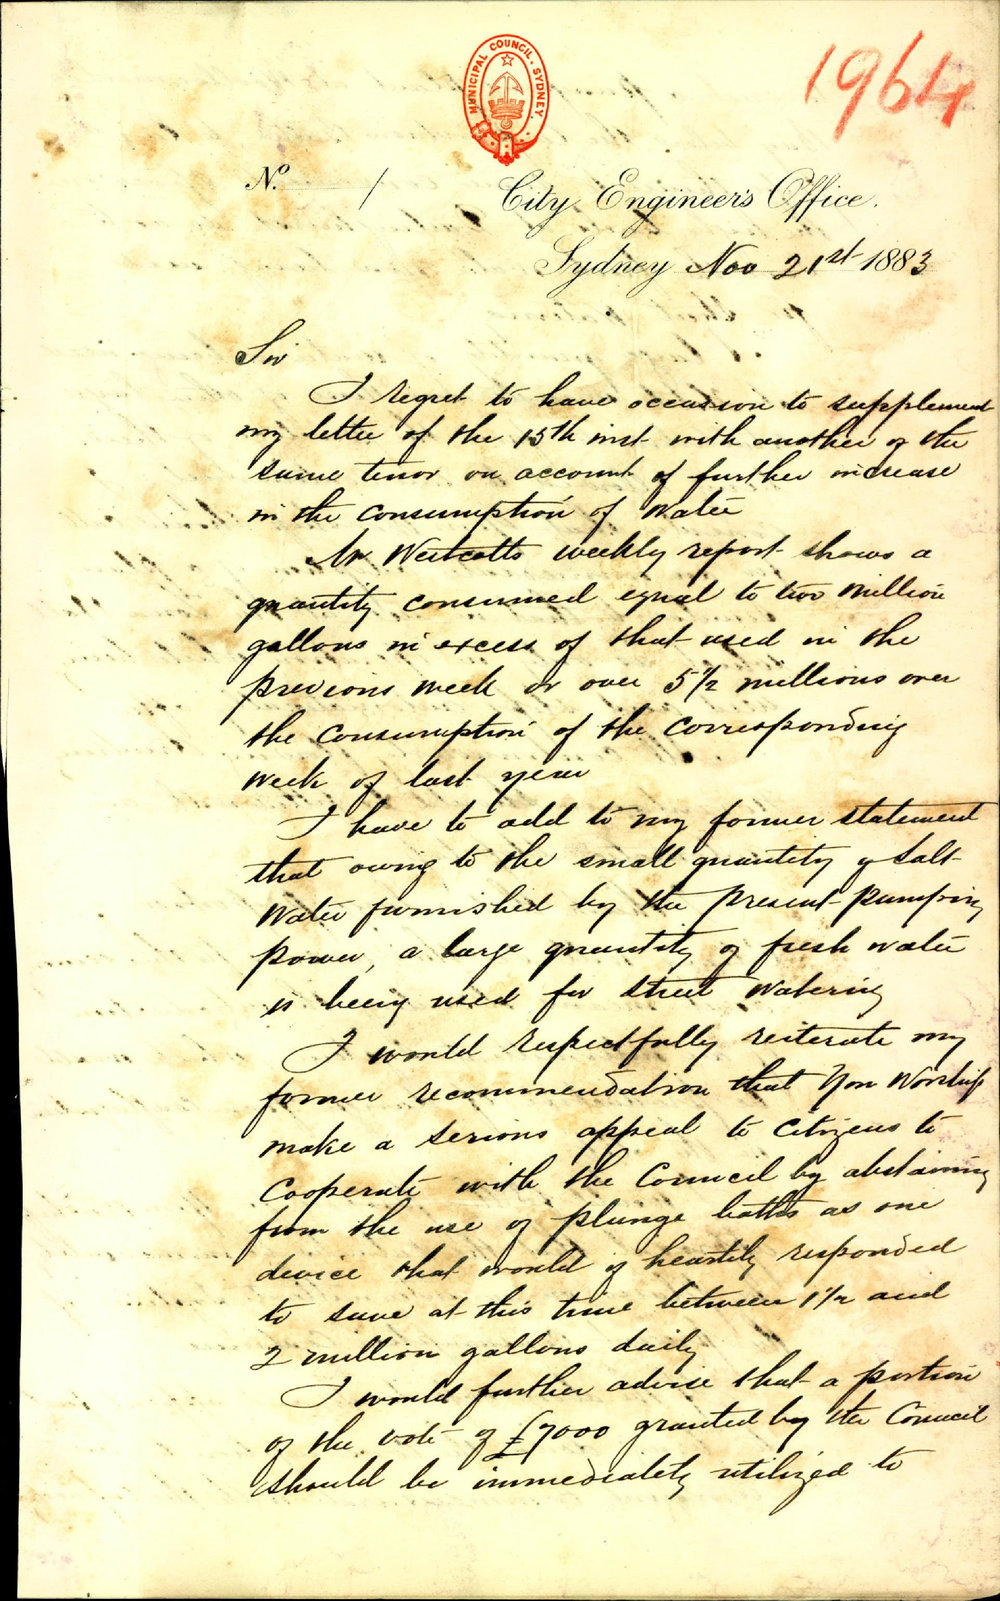 MUNICIPAL COUNCIL. SYDNEY.
1964
No. /
City Engineer's Office.
Sydney Nov 21st 1883
Sir
I regret to have occasion to supplement
my letter of the 15th inst with another of the
same tenor on account of further increase
in the consumption of Water
Mr Westcotts weekly report shows a
quantity consumed equal to two million
gallons in excess of that used in the
previous week or over 5 1/2 millions over
the consumption of the corresponding
week of last year
I have to add to my former statement
that owing to the small quantity of Salt
Water furnished by the present pumping
power, a large quantity of fresh water
is being used for Street Watering
I would respectfully reiterate my
former recommendation that Your Worship
make a serious appeal to Citizens to
Cooperate with the Council by abstaining
from the use of plunge baths as one
device that would if heartily responded
to save at this time between 1 1/2 and
2 million gallons daily
I would further advise that a portion
of the vote of £7000 granted by the Council
should be immediately utilized to